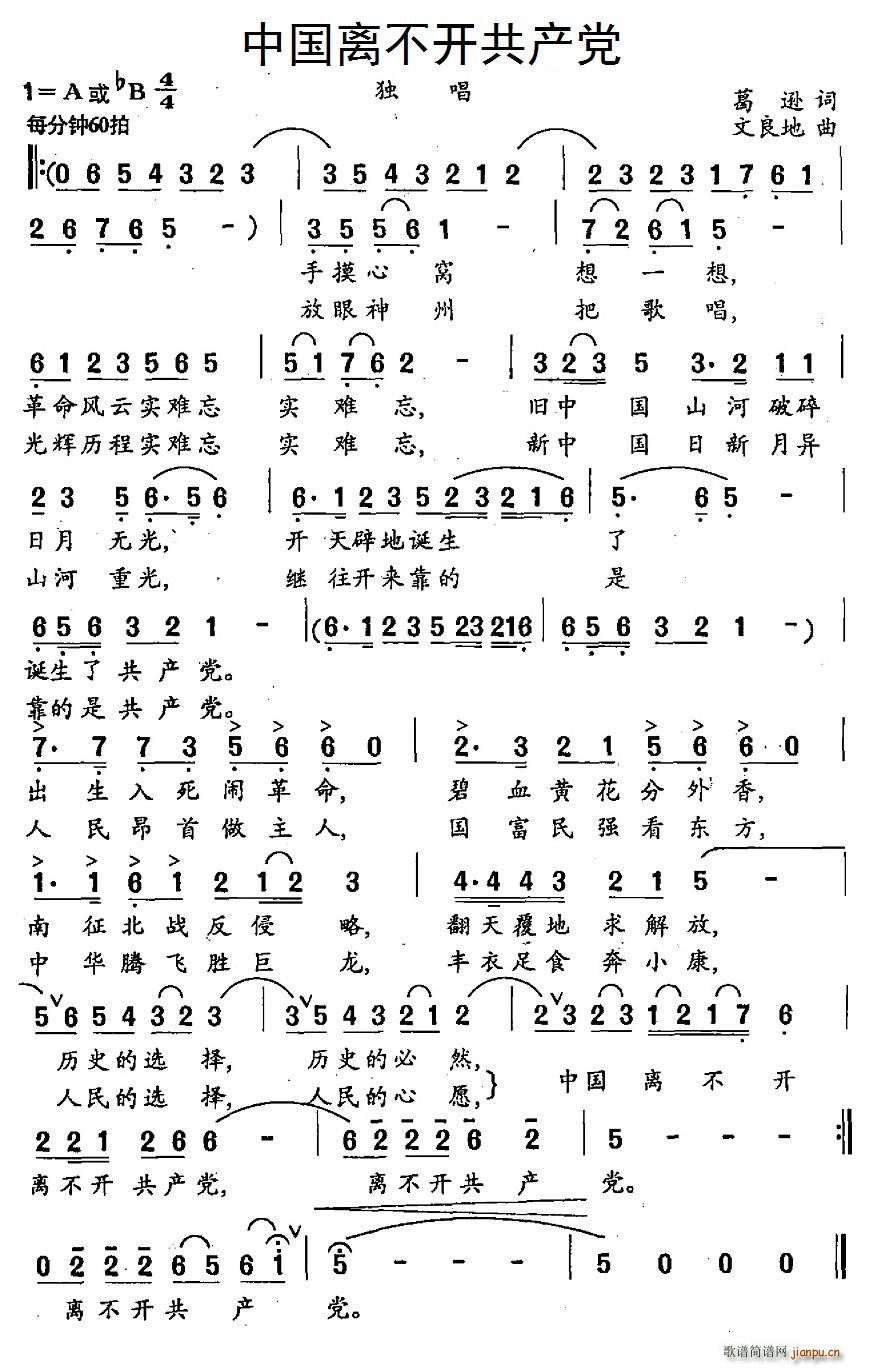 中国离不开共产党
1=A或♭B 4/4 独 唱 葛 逊 词
每分钟60拍 文良地 曲
0 6 5 4 3 2 3 | 3 5 4 3 2 1 2 | 2 3 2 3 1 7 6 1 |
2 6 7 6 5 - ) | 3 5 5 6 1 - | 7 2 6 1 5 - |
手摸心窝 想一想,
放眼神州 把歌唱,
6 1 2 3 5 6 5 | 5 1 7 6 2 - | 3 2 3 5 3· 2 1 1
革命风云实难忘 实难忘, 旧中国山河破碎
光辉历程实难忘 实难忘, 新中国日新月异
2 3 5 6· 5 6 | 6· 1 2 3 5 2 3 2 1 6 | 5· 6 5 - |
日月无光, 开天辟地诞生 了
山河重光, 继往开来靠的 是
6 5 6 3 2 1 - | (6· 1 2 3 5 23 216 | 6 5 6 3 2 1 - ) |
诞生了共产党。
靠的是共产党。
7· 7 7 3 5 6 6 0 | 2· 3 2 1 5 6 6 0 |
出生入死闹革命, 碧血黄花分外香,
人民昂首做主人, 国富民强看东方,
1· 1 6 1 2 1 2 3 | 4· 4 4 3 2 1 5 - |
南征北战反侵略, 翻天覆地求解放,
中华腾飞胜巨龙, 丰衣足食奔小康,
5 6 5 4 3 2 3 | 3 5 4 3 2 1 2 | 2 3 2 3 1 2 1 7 6 |
历史的选择, 历史的必然,
人民的选择, 人民的心愿, } 中国离不开
2 2 1 2 6 6 - | 6 2 2 2 6 2 | 5 - - - :‖
离不开共产党, 离不开共产 党。
0 2 2 2 6 5 6 i | 5 - - - | 5 0 0 0 ‖
离不开共产 党。
歌谱简谱网 jianpu.cn